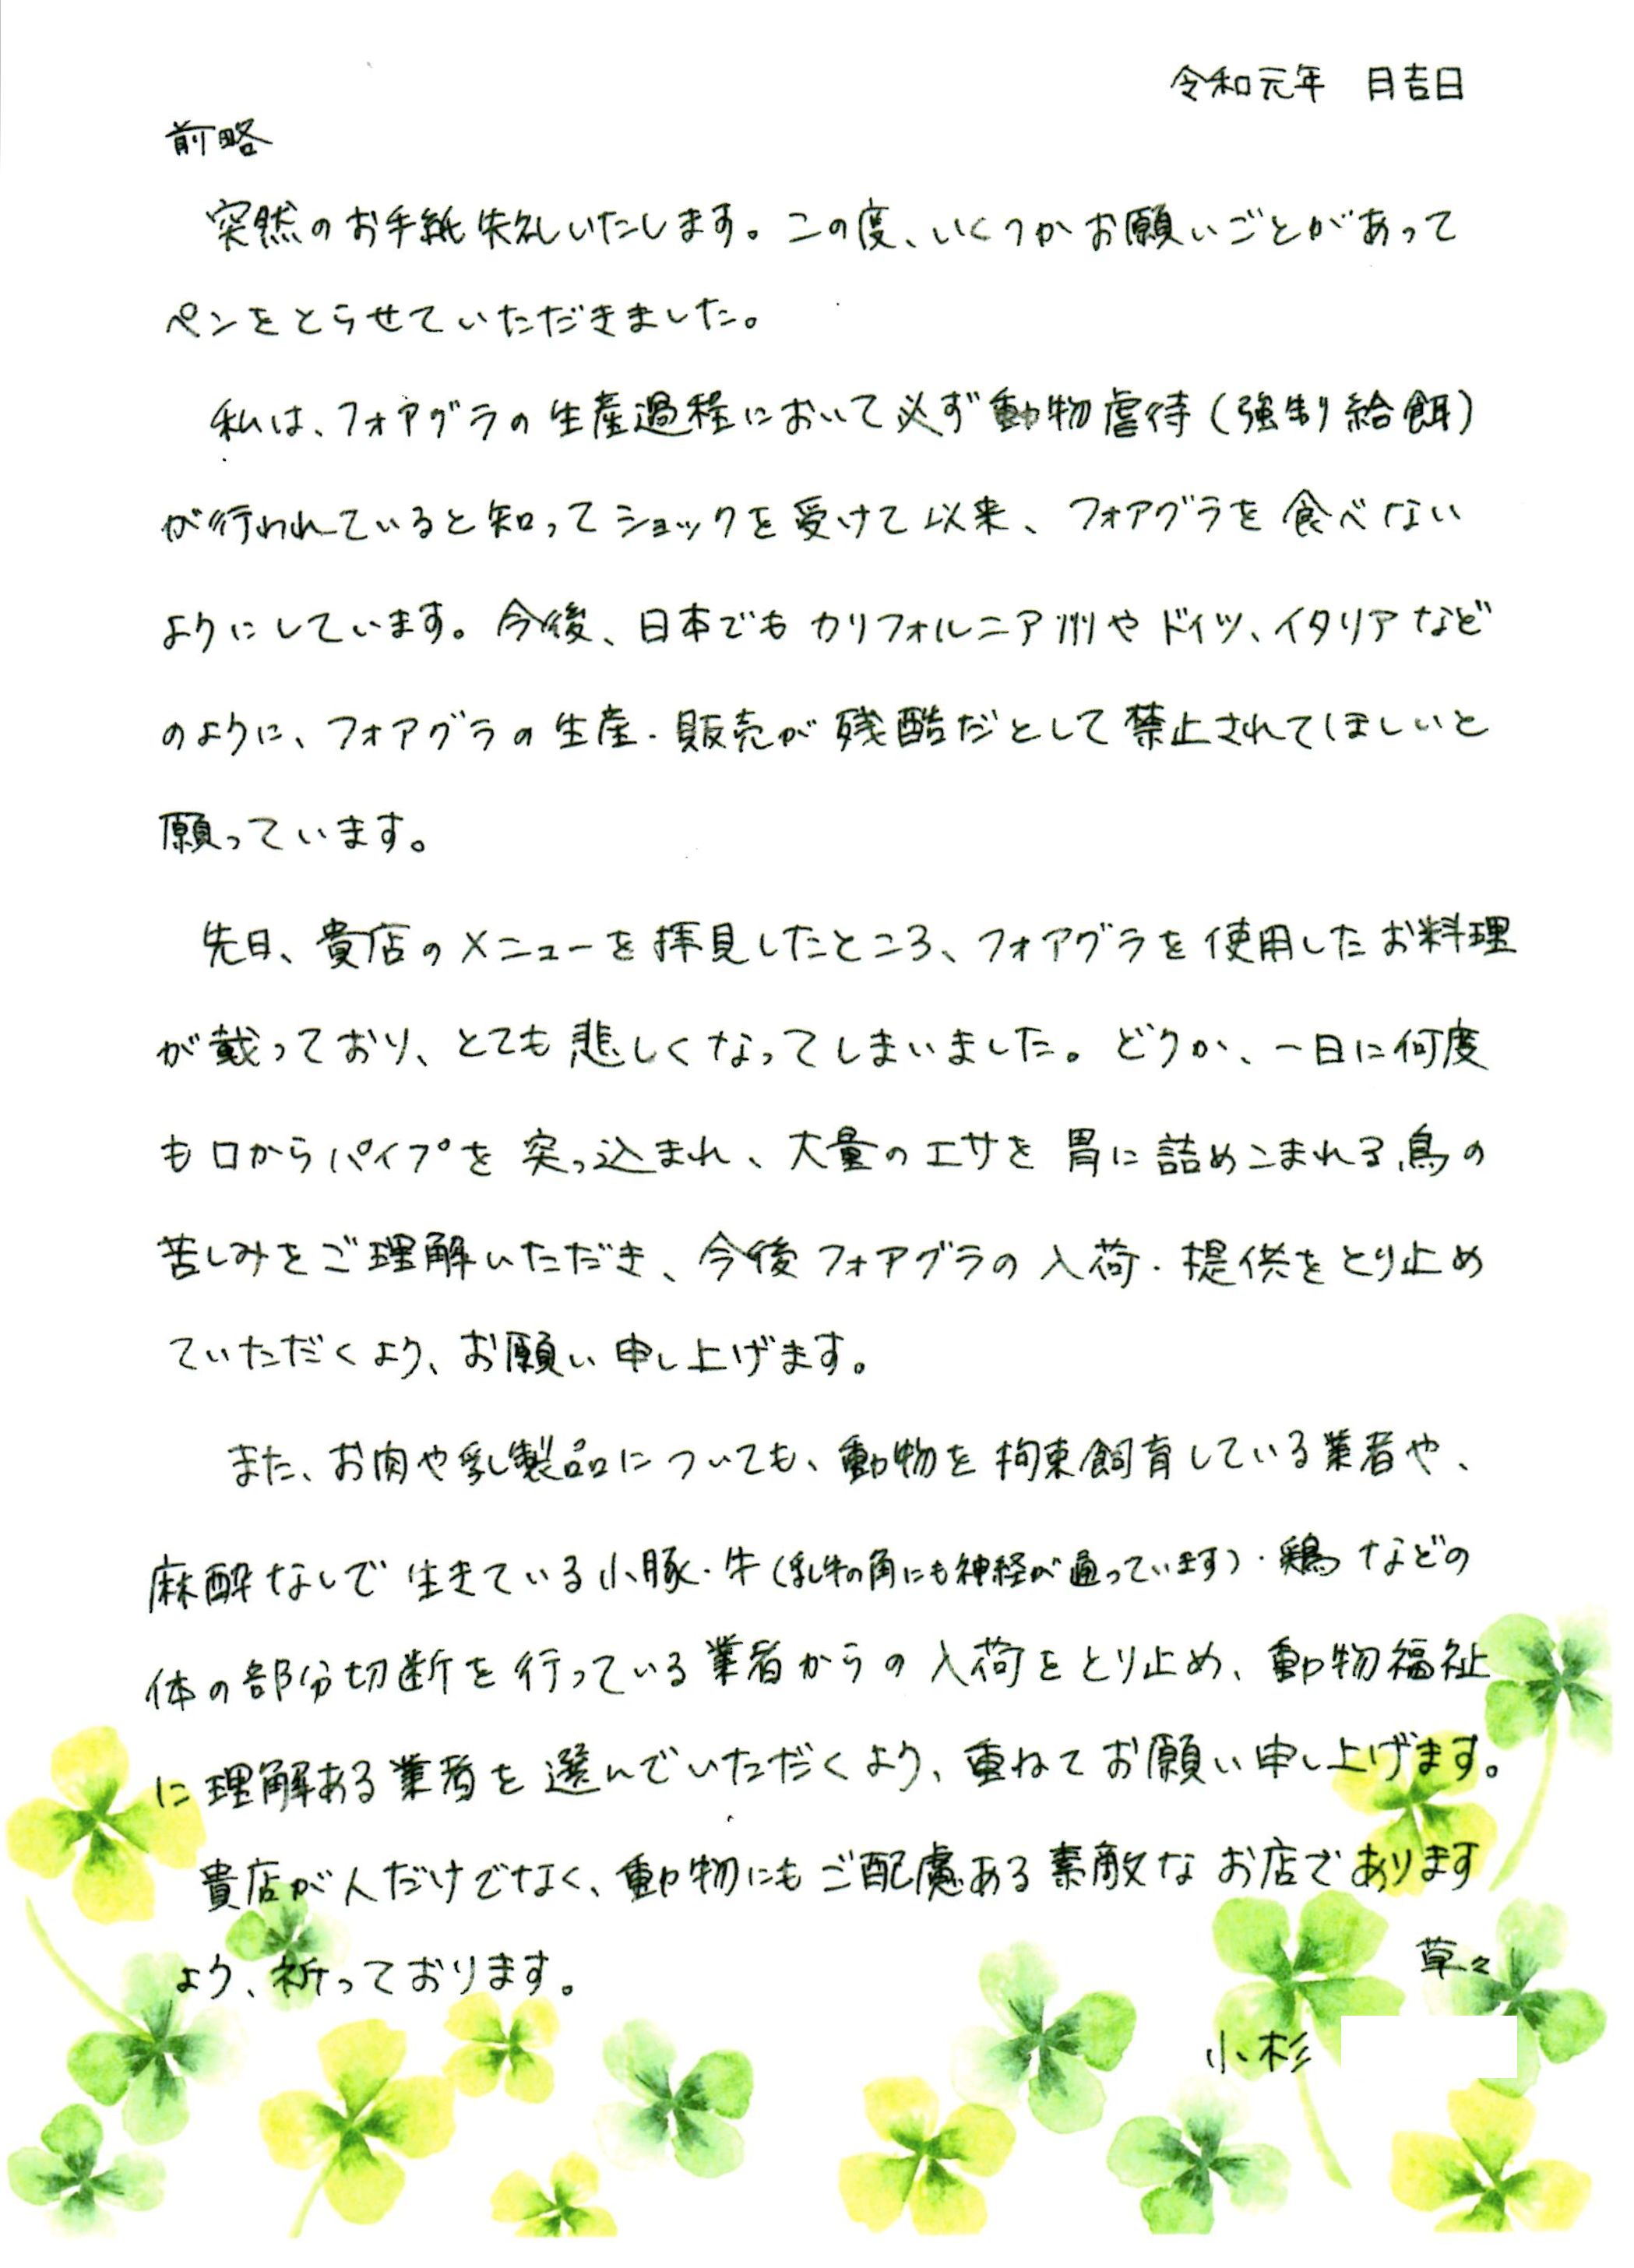 令和元年　月吉日
前略
突然のお手紙失礼いたします。この度、いくつかお願いごとがあって
ペンをとらせていただきました。
私は、フォアグラの生産過程において必ず動物虐待（強制給餌）
が行われていると知ってショックを受けて以来、フォアグラを食べない
ようにしています。今後、日本でもカリフォルニア州やドイツ、イタリアなど
のように、フォアグラの生産・販売が残酷だとして禁止されてほしいと
願っています。
先日、貴店のメニューを拝見したところ、フォアグラを使用したお料理
が載っており、とても悲しくなってしまいました。どうか、一日に何度
も口からパイプを突っ込まれ、大量のエサを胃に詰めこまれる鳥の
苦しみをご理解いただき、今後フォアグラの入荷・提供をとり止め
ていただくよう、お願い申し上げます。
また、お肉や乳製品についても、動物を拘束飼育している業者や、
麻酔なしで生きている小豚・牛（乳牛の角にも神経が通っています）・鶏などの
体の部分切断を行っている業者からの入荷をとり止め、動物福祉
に理解ある業者を選んでいただくよう、重ねてお願い申し上げます。
貴店が人だけでなく、動物にもご配慮ある素敵なお店であります
よう、祈っております。
草々
小杉